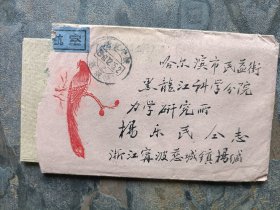 航空
哈尔滨市民益街
黑龍江科学分院
力学研究所
楊乐民公志
浙江宁波慈城镇楊缄